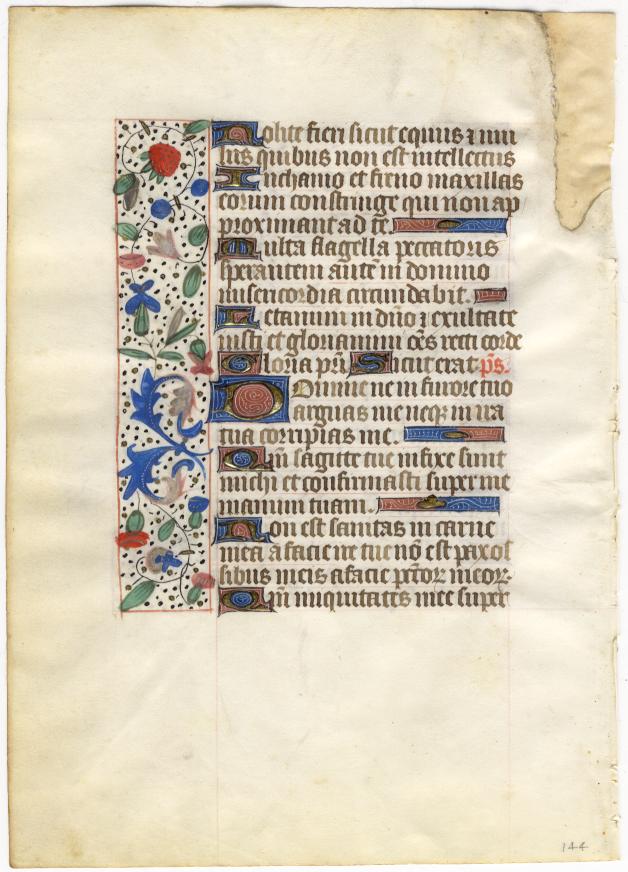 Nolite fieri sicut equus ⁊ mu
lus quibus non est intellectus
In chamo et freno maxillas
eorum constringe qui non ap
proximant ad te.
Multa flagella peccatoris
sperantem autē in domino
misericordia circūdabit.
Letamini in dño ⁊ exultate
iusti et gloriamini oēs recti corde
Gloria pr̄i Sicut erat ps̄.
Domine ne in furore tuo
arguas me neqꝫ in ira
tua corripias me.
Qm̄ sagitte tue infixe sunt
michi et confirmasti super me
manum tuam.
Non est sanitas in carne
mea a facie ire tue nō est pax os
sibus meis a facie pctōꝝ meoꝝ.
Qm̄ iniquitates mee super
144